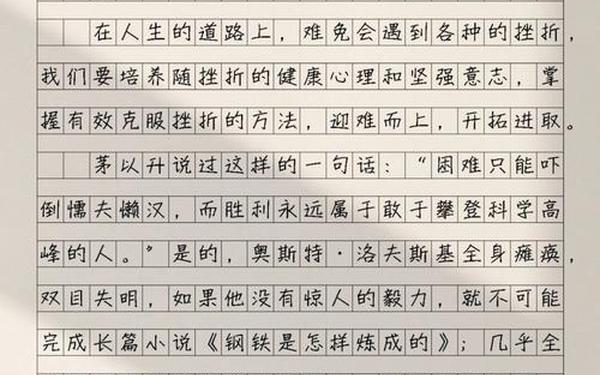 在人生的道路上，难免会遇到各种的挫折，
我们要培养随挫折的健康心理和坚强意志，掌
握有效克服挫折的方法，迎难而上，开拓进取。
茅以升说过这样的一句话：“困难只能吓
倒懦夫懒汉，而胜利永远属于敢于攀登科学高
峰的人。”是的，奥斯特·洛夫斯基全身瘫痪，
双目失明，如果他没有惊人的毅力，就不可能
完成长篇小说《钢铁是怎样炼成的》；几乎全